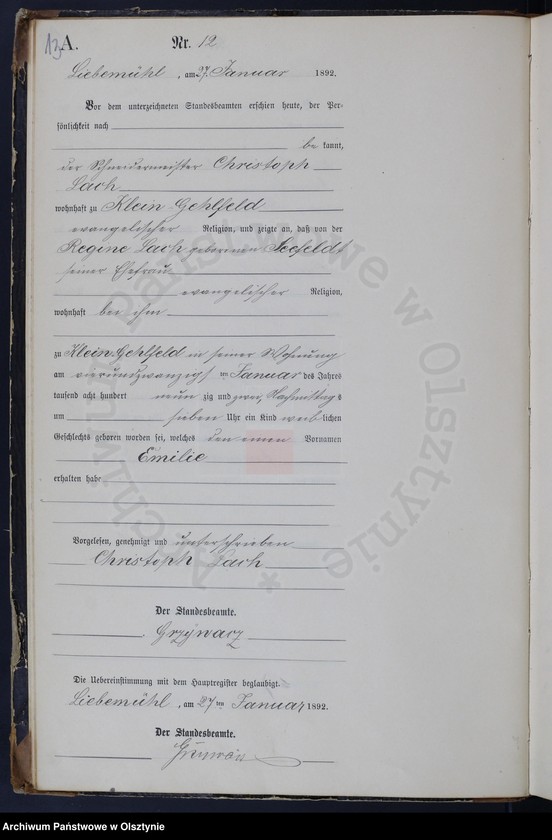 13
A.
Nr. 12
Liebemühl, am 27. Januar 1892.
Vor dem unterzeichneten Standesbeamten erschien heute, der Per-
sönlichkeit nach
be kannt,
der Schneidermeister Christoph
Lach
wohnhaft zu Klein Gehlfeld
evangelischer Religion, und zeigte an, daß von der
Regine Lach geborenen Seefeldt
seiner Ehefrau
evangelischer Religion,
wohnhaft bei ihm
zu Klein Gehlfeld in seiner Wohnung
am vierundzwanzigsten Januar des Jahres
tausend acht hundert neun zig und zwei, Nachmittags
um sieben Uhr ein Kind weiblichen
Geschlechts geboren worden sei, welches den einen Vornamen
Emilie
erhalten habe
Vorgelesen, genehmigt und unterschrieben
Christoph Lach
Der Standesbeamte.
Grzywarz
Die Uebereinstimmung mit dem Hauptregister beglaubigt.
Liebemühl, am 27ten Januar 1892.
Der Standesbeamte.
Archiwum Państwowe w Olsztynie *
Archiwum Państwowe w Olsztynie